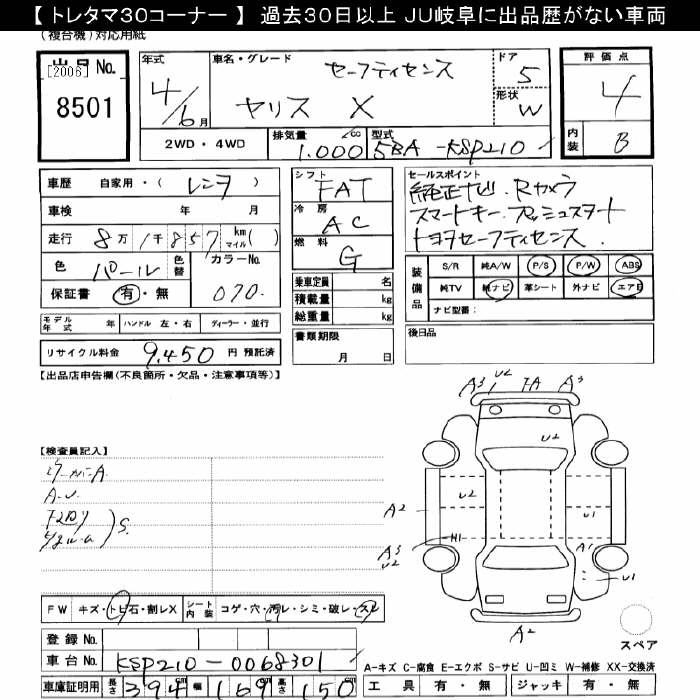 【 トレタマ30コーナー 】 過去30日以上 JU岐阜に出品歴がない車両
(複合機)対応用紙
出品No.
[2006]
8501
年式
4/6月
車名・グレード
セーフティセンス
ヤリス X
ドア
5
形状
W
評価点
4
内装
B
2WD・4WD
排気量
1.000cc
型式
5BA-KSP210
車歴 自家用・( レンタ )
車検 年 月
走行 8万1千857km マイル( )
色 パール
色替
カラーNo.
070.
保証書 有・無
モデル年式 年 ハンドル 左・右 ディーラー・並行
リサイクル料金 9,450 円 預託済
シフト
FAT
冷房
AC
燃料
G
乗車定員 名
積載量 kg
総重量 kg
書類期限
月 日
セールスポイント
純正ナビ. Rカメラ
スマートキー. プッシュスタート
トヨタセーフティセンス.
装備品
S/R 純A/W P/S P/W ABS
純TV 純ナビ 革シート 外ナビ エアB
ナビ型番:
後日品
【出品店申告欄(不良箇所・欠品・注意事項等)】
【検査員記入】
A.U.
S.
A3 U2 TA A3
U2
U2
A2
U1
H1
A3
U2
A1
U1
A2
スペア
FW キズ・トビ石・割レX
シート内装 コゲ・穴・汚レ・シミ・破レ・スレ
登録 No.
車台 No. KSP210-0068301
車庫証明用 長さ 394 幅 169 高さ 150 cm
A-キズ C-腐食 E-エクボ S-サビ U-凹ミ W-補修 XX-交換済
工具 有・無 ジャッキ 有・無